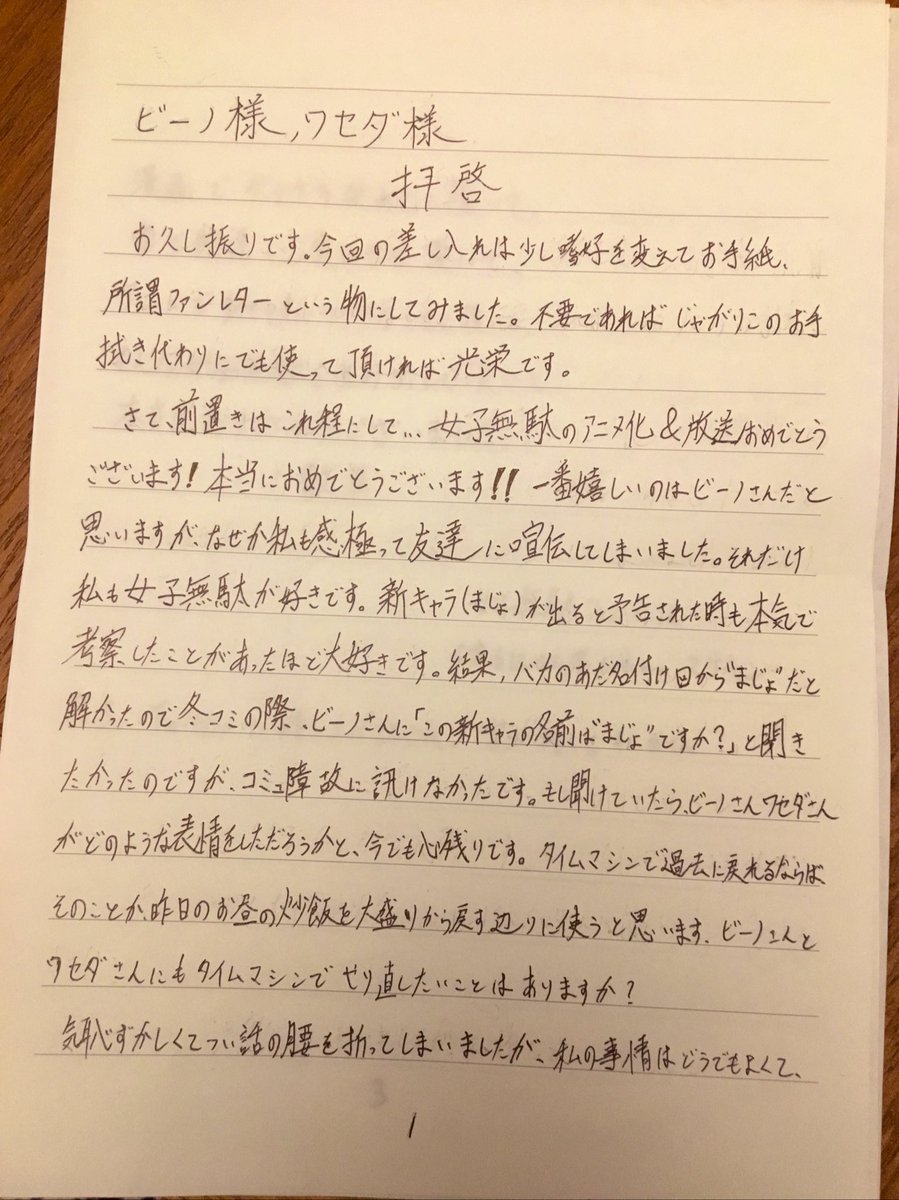 ビーノ様,ワセダ様
拝啓
お久し振りです。今回の差し入れは少し嗜好を変えてお手紙、
所謂ファンレターという物にしてみました。不要であればじゃがりこのお手
拭き代わりにでも使って頂ければ光栄です。
さて、前置きはこれ程にして... 女子無駄のアニメ化&放送おめでとう
ございます! 本当におめでとうございます!! 一番嬉しいのはビーノさんだと
思いますが、なぜか私も感極って友達に宣伝してしまいました。それだけ
私も女子無駄が好きです。新キャラ(まじょ)が出ると予告された時も本気で
考察したことがあったほど大好きです。結果,バカのあだ名付け回から"まじょ"だと
解かったので冬コミの際、ビーノさんに「この新キャラの名前は"まじょ"ですか?」と聞き
たかったのですが、コミュ障故に訊けなかったです。もし聞けていたら、ビーノさんワセダさん
がどのような表情をしただろうかと、今でも心残りです。タイムマシンで過去に戻れるならば
そのことか、昨日のお昼の炒飯を大盛りから戻す辺りに使うと思います。ビーノさんと
ワセダさんにもタイムマシンでやり直したいことはありますか?
気恥ずかしくてつい話の腰を折ってしまいましたが、私の事情はどうでもよくて、
1